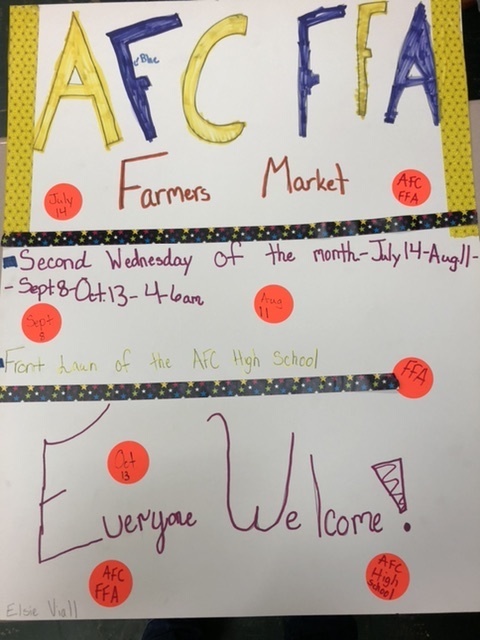 AFC FFA
Blue
Farmers Market
July 14
AFC FFA
Second Wednesday of the month-July 14-Aug 11-
-Sept 8-Oct 13- 4-6am
Aug 11
Sept 8
Front Lawn of the AFC High School
FFA
Oct 13
Everyone Welcome!
AFC FFA
AFC High School
Elsie Viall